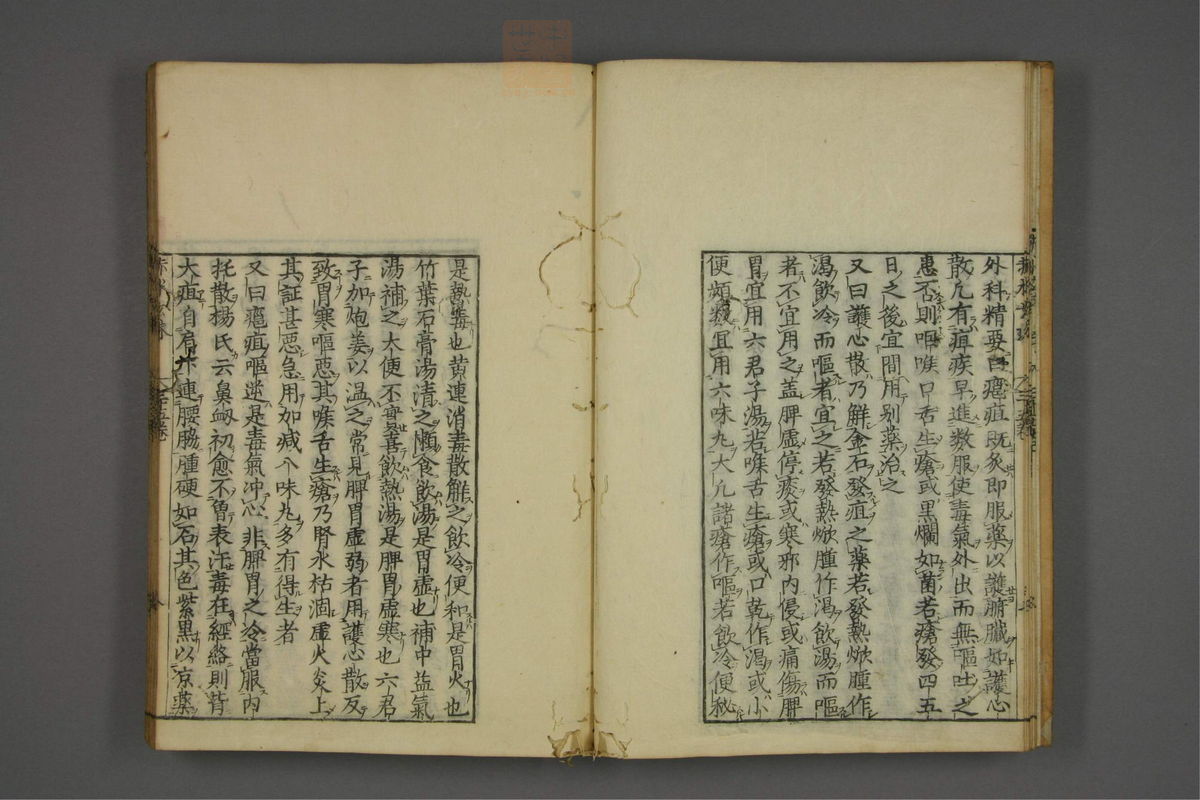 外科精要曰瘡疽既灸即服藥以護臟腑如護心
散凡有疽疾早進數服使毒氣外出而無嘔吐之
患否則嘔喉口舌生瘡或黒爛如菌若瘡發四五
日之後宜間用别藥治之
又曰護心散乃觧金石發疽之藥若發熱焮腫作
渴飲冷而嘔者宜之若發熱焮腫作渴飲湯而嘔
者不宜用之盖脾虚停痰或寒邪内侵或痛傷脾
胃宜用六君子湯若喉舌生瘡或口乾作渴或小
便頻數冝用六味丸大凡諸瘡作嘔若飲冷便秘
是熱毒也黄連消毒散觧之飲冷便和是胃火也
竹葉石膏湯清之懶食飲湯是胃虚也補中益氣
湯補之大便不實喜飲熱湯是脾胃虚寒也六君
子加炮姜以温之常見脾胃虚弱者用護心散反
致胃寒嘔惡其喉舌生瘡乃腎水枯涸虚火炎上
其証甚惡急用加减八味丸多有得生者
又曰瘡疽嘔逆是毒氣冲心非脾胃之冷當服内
托散楊氏云鼻衂初愈不曽表汗毒在經絡則背
大疽自肩下連腰脇腫硬如石其色紫黒以凉藥